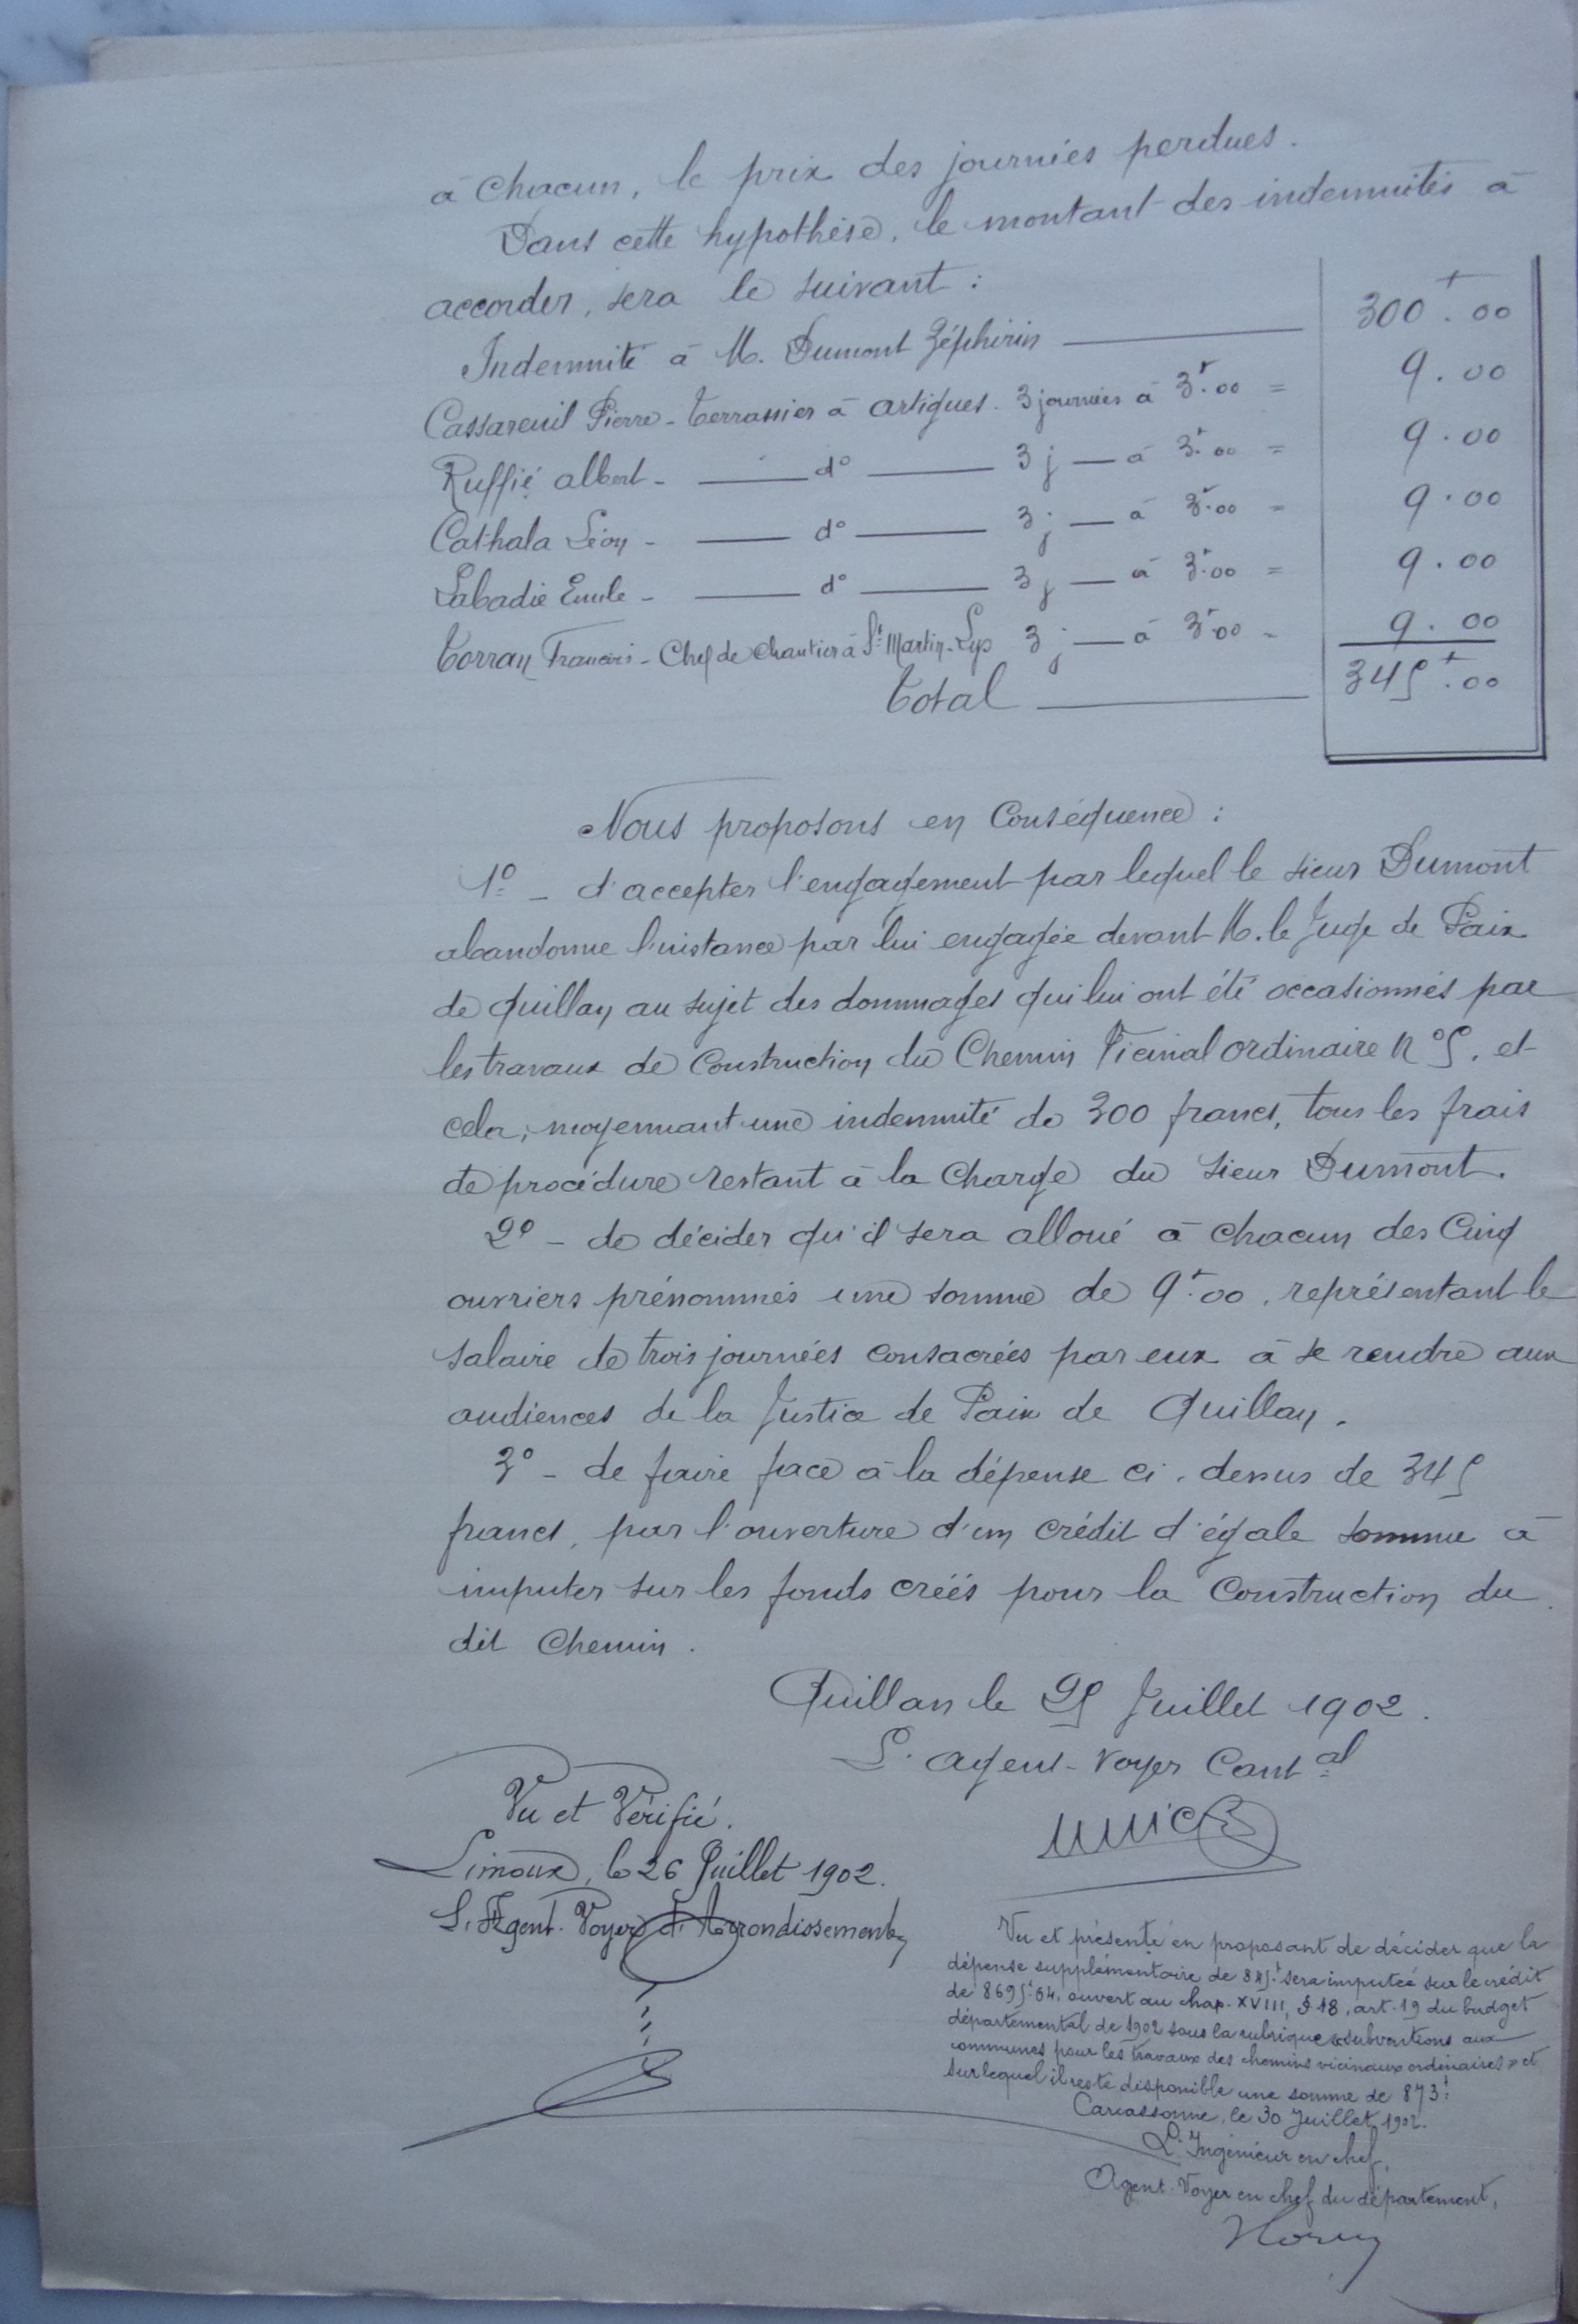 à chacun, le prix des journées perdues.
Dans cette hypothèse, le montant des indemnités à
accorder, sera le suivant :
Indemnité à M. Dumont Zéphirin 300f.00
Cassareuil Pierre - terrassier à artigues. 3 journées à 3f.00 = 9.00
Ruffié albert - d° 3 j — à 3f.00 = 9.00
Cathala Léon - d° 3 j — à 3f.00 = 9.00
Labadie Emile - d° 3 j — à 3f.00 = 9.00
Torran Francois - Chef de chantier à St Martin-Lys 3 j — à 3f.00 = 9.00
Total 345f.00
Nous proposons en Conséquence :
1° - d'accepter l'engagement par lequel le sieur Dumont
abandonne l'instance par lui engagée devant M. le Juge de Paix
de Quillan au sujet des dommages qui lui ont été occasionnés par
les travaux de Construction du Chemin Vicinal ordinaire N° 5, et
cela, moyennant une indemnité de 300 francs, tous les frais
de procédure restant à la charge du sieur Dumont.
2° - de décider qu'il sera alloué à chacun des Cinq
ouvriers prénommés une somme de 9f.00, représentant le
salaire de trois journées consacrées par eux à se rendre aux
audiences de la Justice de Paix de Quillan.
3° - de faire face à la dépense ci-dessus de 345
francs, par l'ouverture d'un crédit d'égale somme à
imputer sur les fonds créés pour la Construction du
dit Chemin.
Quillan le 25 Juillet 1902.
L'agent-voyer Cantal
Vu et Vérifié.
Limoux, le 26 Juillet 1902.
L'Agent-Voyer d'Arrondissement,
Vu et présenté en proposant de décider que la
dépense supplémentaire de 845f sera imputée sur le crédit
de 8695f.04, ouvert au chap. XVIII, § 18, art. 19 du budget
départemental de 1902 sous la rubrique « subventions aux
communes pour les travaux des chemins vicinaux ordinaires » et
sur lequel il reste disponible une somme de 873f.
Carcassonne, le 30 Juillet 1902.
L'Ingénieur en chef,
Agent-Voyer en chef du département,